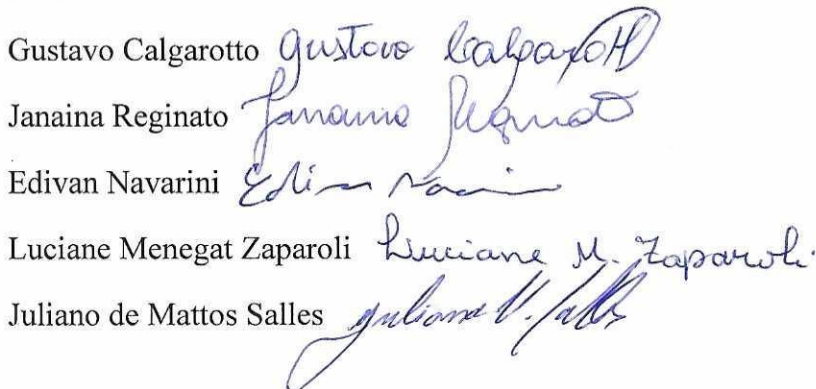 Gustavo Calgarotto Gustavo Calgarotto
Janaina Reginato Janaina Reginato
Edivan Navarini
Luciane Menegat Zaparoli Luciane M. Zaparoli
Juliano de Mattos Salles